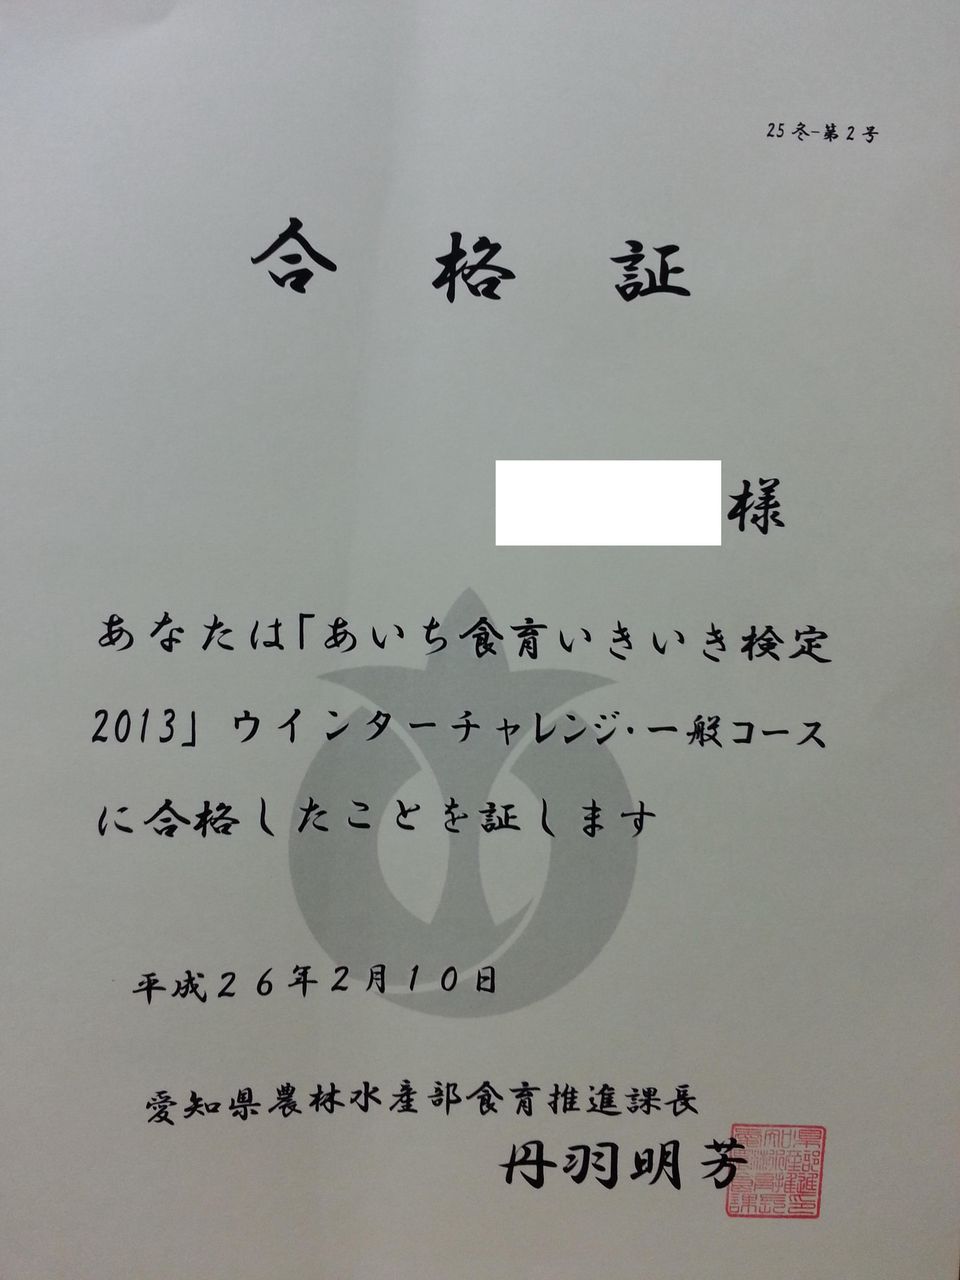 25冬-第2号
合格証
様
あなたは「あいち食育いきいき検定
2013」ウインターチャレンジ・一般コース
に合格したことを証します
平成26年2月10日
愛知県農林水産部食育推進課長
丹羽明芳